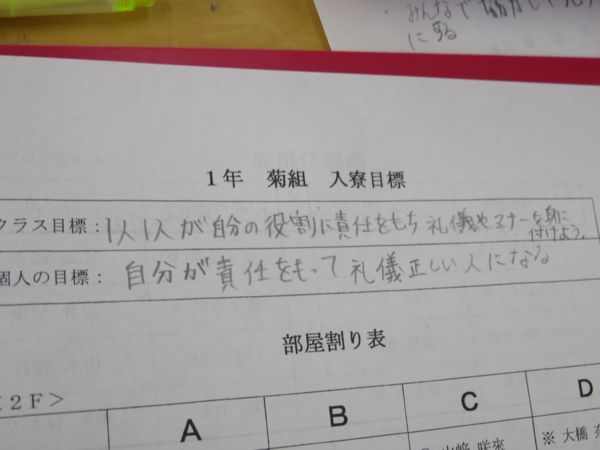 ・みんなで協力して
にする
1年 菊組 入寮目標
クラス目標：1人1人が自分の役割に責任をもち礼儀やマナーを身に
付けよう。
個人の目標：自分が責任をもって礼儀正しい人になる
部屋割り表
2F＞
A B C D
※ 大橋